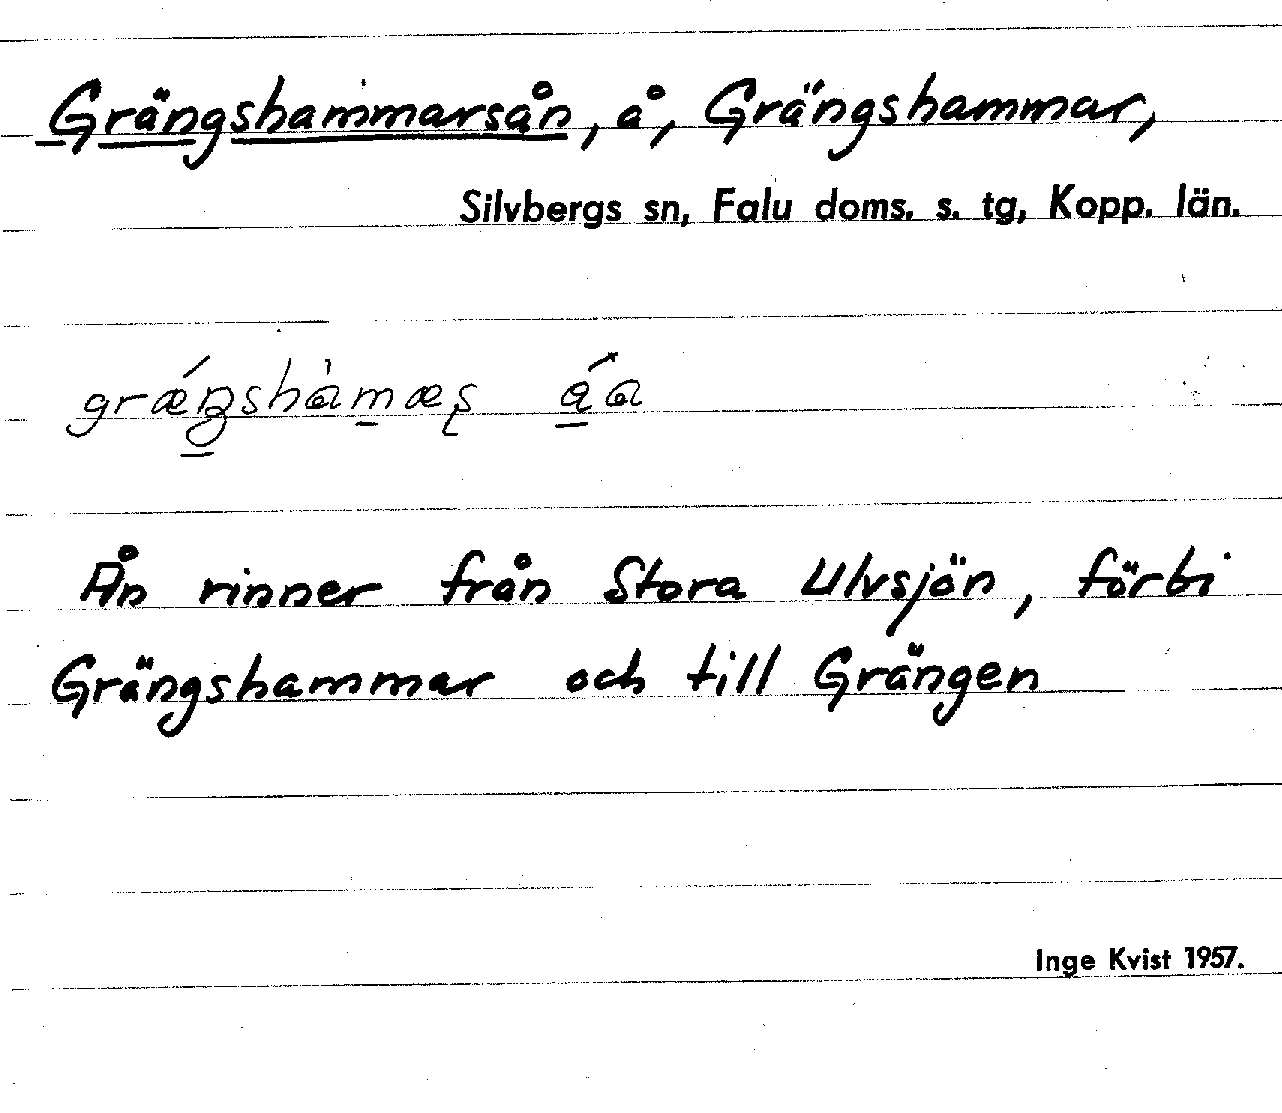 Grängshammarsån, å, Grängshammar,
Silvbergs sn, Falu doms. s. tg, Kopp. län.
Ån rinner från Stora Ulvsjön, förbi
Grängshammar och till Grängen
Inge Kvist 1957.